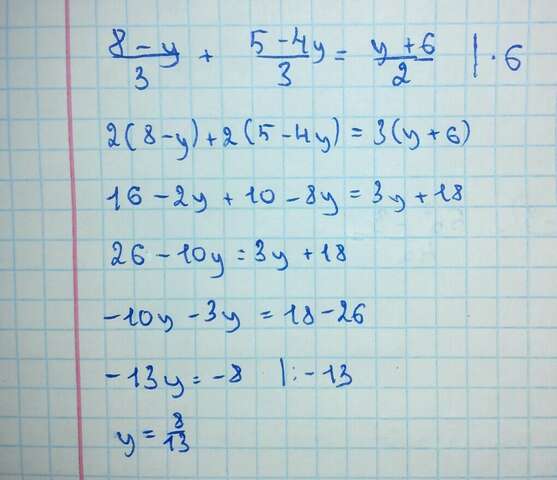 (8-y)/3 + (5-4y)/3 = (y+6)/2 | · 6
2(8-y)+2(5-4y) = 3(y+6)
16-2y+10-8y = 3y+18
26-10y = 3y+18
-10y-3y = 18-26
-13y = -8 | : -13
y = 8/13